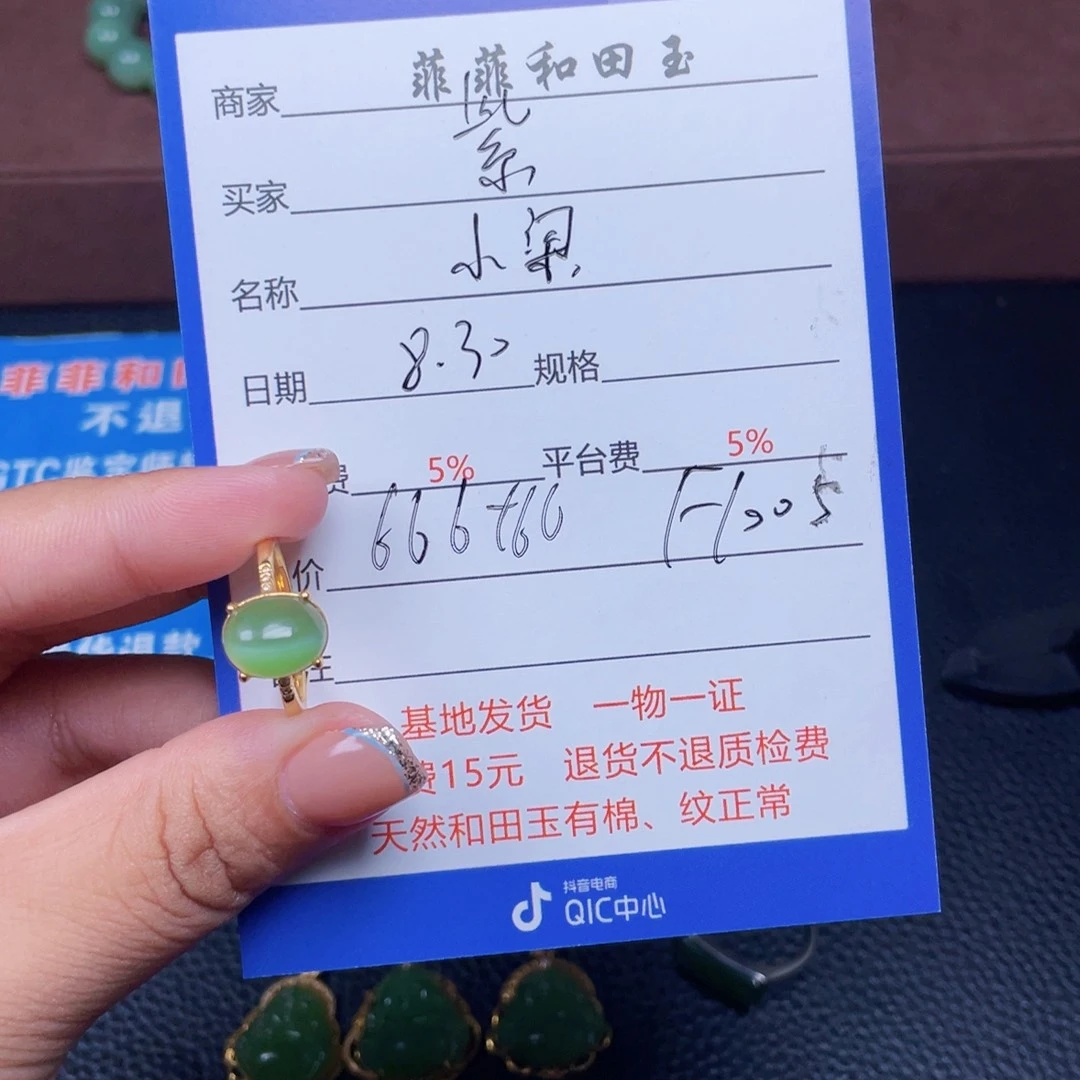 商家 菲菲和田玉
买家 紫
名称 小梁
日期 8.30 规格
费 5% 平台费 5%
价 666+66
注
基地发货 一物一证
费15元 退货不退质检费
天然和田玉有棉、纹正常
抖音电商
QIC中心
菲菲和
不退
GTC鉴定师
退款